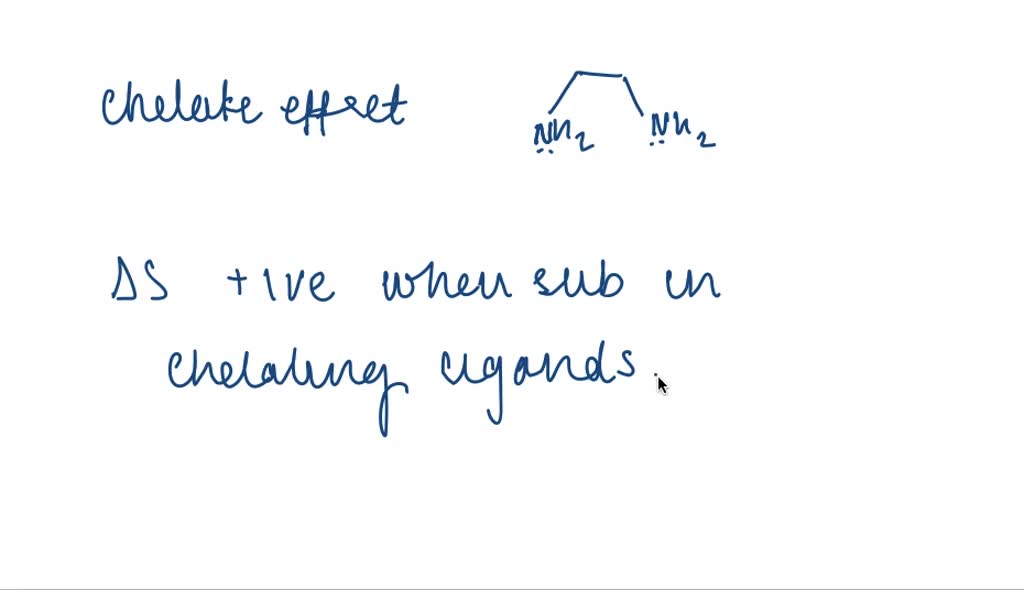 chelate effect
NH2 NH2
ΔS +ive when sub in
chelating ligands.